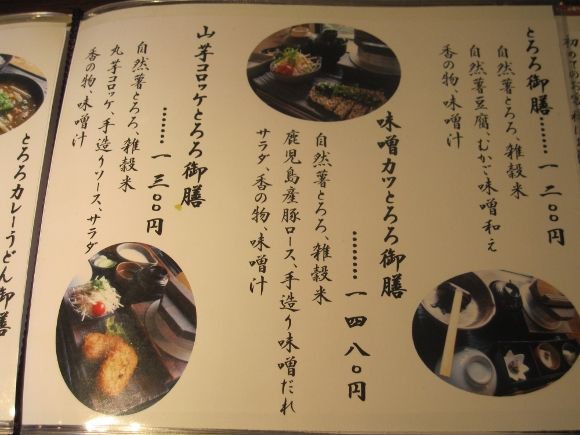 とろろ御膳………一二〇〇円
自然薯とろろ、雑穀米
自然薯豆腐、むかご味噌和え
香の物、味噌汁
味噌カツとろろ御膳
………一四八〇円
自然薯とろろ、雑穀米
鹿児島産豚ロース、手造り味噌だれ
サラダ、香の物、味噌汁
山芋コロッケとろろ御膳
………一三〇〇円
自然薯とろろ、雑穀米
丸芋コロッケ、手造りソース、サラダ
香の物、味噌汁
とろろカレーうどん御膳